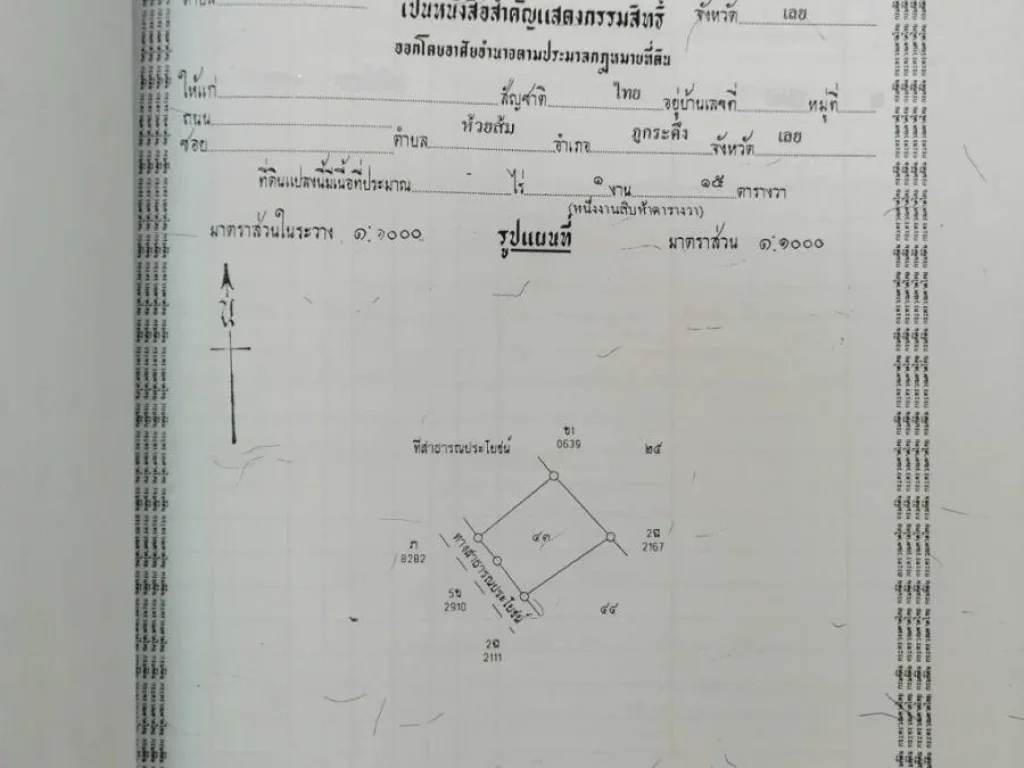 ตำบล
เป็นหนังสือสำคัญแสดงกรรมสิทธิ์ จังหวัด เลย
ออกโดยอาศัยอำนาจตามประมวลกฎหมายที่ดิน
ให้แก่ สัญชาติ ไทย อยู่บ้านเลขที่ หมู่ที่
ถนน
ซอย ตำบล ห้วยส้ม อำเภอ ภูกระดึง จังหวัด เลย
ที่ดินแปลงนี้มีเนื้อที่ประมาณ - ไร่ ๑ งาน ๑๕ ตารางวา
(หนึ่งงานสิบห้าตารางวา)
มาตราส่วนในระวาง ๑:๑๐๐๐ รูปแผนที่ มาตราส่วน ๑:๑๐๐๐
น
ที่สาธารณประโยชน์
ข1
0639
๒๕
๔๓
2ฉ
2167
ภ
8282
ทางสาธารณประโยชน์
5ข
2910
๔๔
2ฉ
2111